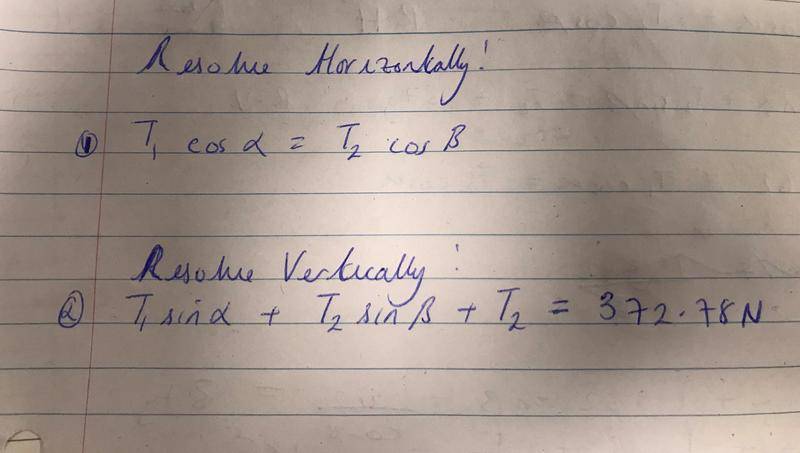 Resolve Horizontally!
① T₁ cos α = T₂ cos β
Resolve Vertically!
② T₁ sin α + T₂ sin β + T₂ = 372.78N